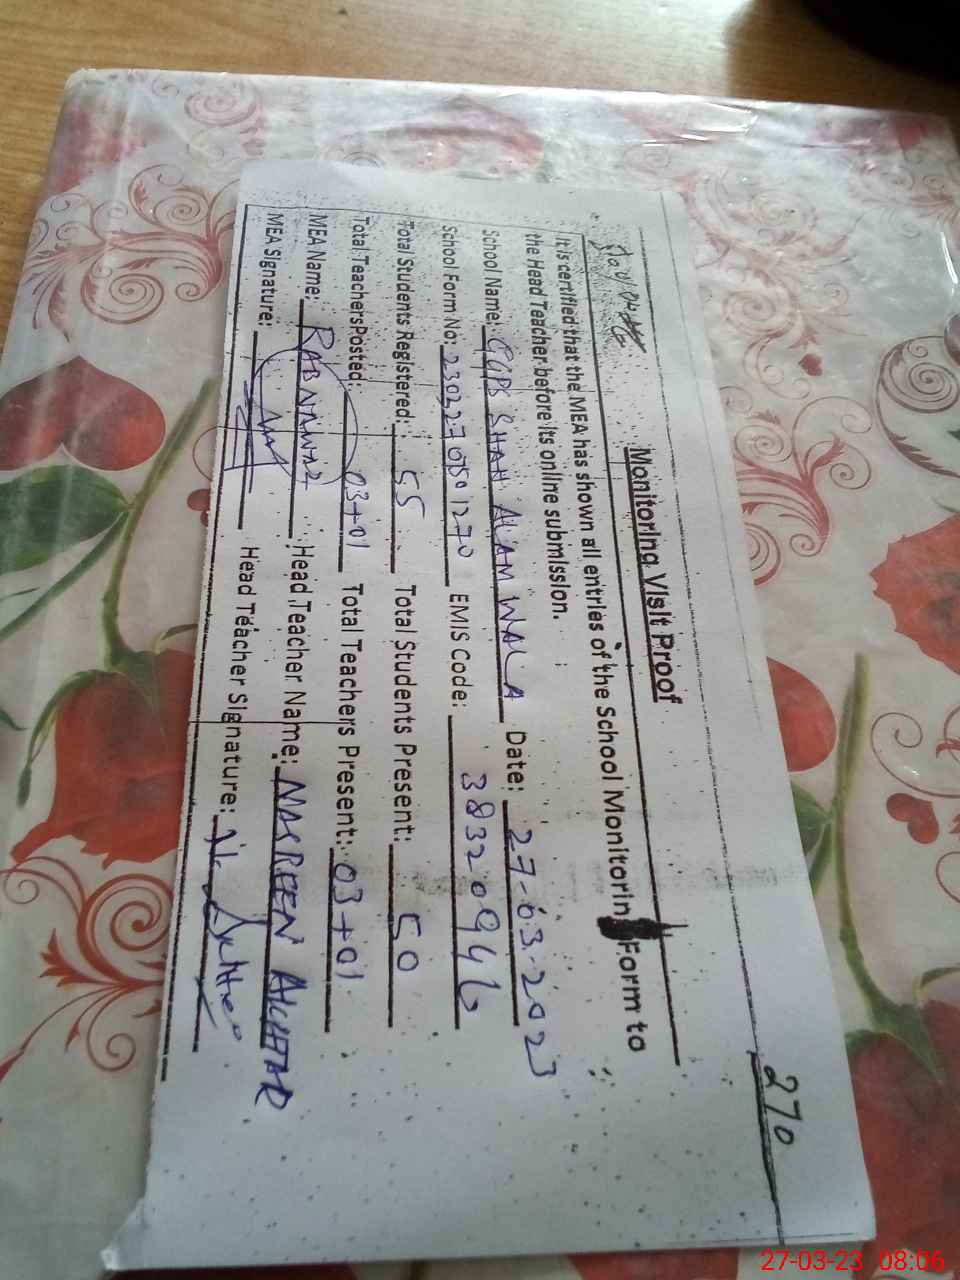 270
Monitoring Visit Proof
It is certified that the MEA has shown all entries of the School Monitorin Form to
the Head Teacher before its online submission.
School Name: GGPS SHAH ALAM WALA Date: 27-03-2023
School Form No: EMIS Code: 38320946
Total Students Registered: 55 Total Students Present: 50
Total Teachers Posted: 03+01 Total Teachers Present: 03+01
MEA Name: RAB NAWAZ Head Teacher Name: NASREEN AKHTAR
MEA Signature: Head Teacher Signature:
27-03-23 08:06